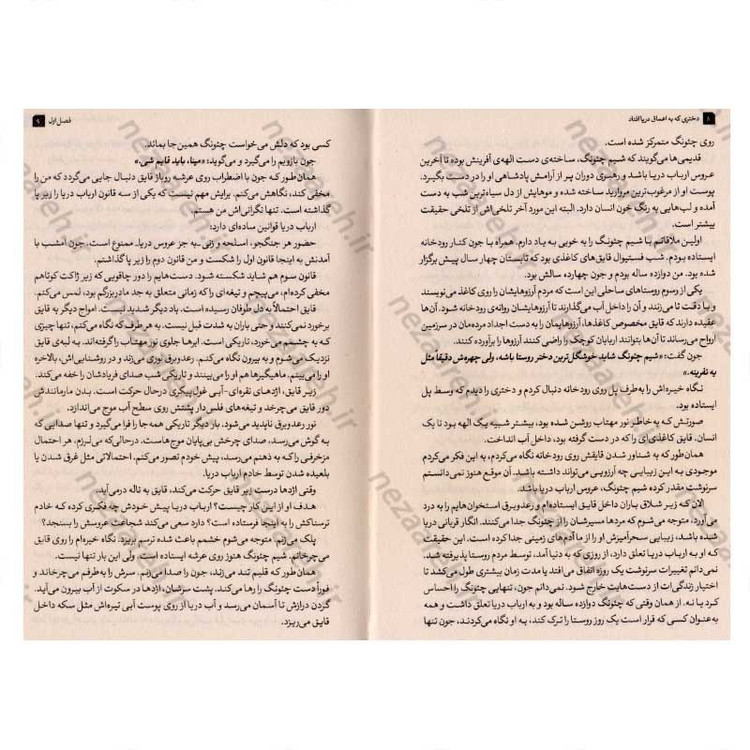 ۸ دختری که به اعماق دریا افتاد
روی چئونگ متمرکز شده است.
قدیمی‌ها می‌گویند که شیم چئونگ، ساخته‌ی دست الهه‌ی آفرینش بوده تا آخرین
عروس ارباب دریا باشد و رهبری دوران پر از آرامش پادشاهی او را در دست بگیرد.
پوست او از مرغوب‌ترین مروارید ساخته شده و موهایش از دل سیاه‌ترین شب به دست
آمده و لب‌هایی به رنگ خون انسان دارد. البته این مورد آخر تلخی‌اش از تلخی حقیقت
بیشتر است.
اولین ملاقاتم با شیم چئونگ را به خوبی به یاد دارم. همراه با جون کنار رودخانه
ایستاده بودم. شب فستیوال قایق‌های کاغذی بود که تابستان چهار سال پیش برگزار
شده بود. من دوازده ساله بودم و جون چهارده سالش بود.
یکی از رسوم روستاهای ساحلی این است که مردم آرزوهایشان را روی کاغذ می‌نویسند
و با دقت تا می‌زنند و آن را داخل آب می‌گذارند تا آرزوهایشان روانه‌ی رودخانه شود. آن‌ها
عقیده دارند که قایق مخصوص کاغذها، آرزوهایمان را به دست اجداد مرده‌مان در سرزمین
ارواح می‌رساند تا آن‌ها بتوانند اربابان کوچک را راضی کنند آرزوها را برآورده کنند.
جون گفت: «شیم چئونگ شاید خوشگل‌ترین دختر روستا باشه، ولی چهره‌ش دقیقاً مثل
یه نفرینه.»
نگاه خیره‌اش را به‌طرف پل روی رودخانه دنبال کردم و دختری را دیدم که وسط پل
ایستاده بود.
صورتش که به خاطر نور مهتاب روشن شده بود، بیشتر شبیه یک الهه بود تا یک
انسان. قایق کاغذی‌ای را که در دست گرفته بود، داخل آب انداخت.
همان‌طور که به شناور شدن قایقش روی رودخانه نگاه می‌کردم، به این فکر می‌کردم
موجودی به این زیبایی چه آرزویی می‌تواند داشته باشد. آن موقع هنوز نمی‌دانستم
سرنوشت مقدر کرده شیم چئونگ، عروس ارباب دریا باشد.
الان که زیر شلاق باران داخل قایق ایستاده‌ام و رعدوبرق استخوان‌هایم را به درد
می‌آورد، متوجه می‌شوم که مردها مسیرشان را از چئونگ جدا می‌کنند. انگار قربانی دریا
شده باشد، زیبایی سحرآمیزش او را از ما آدم‌های زمینی جدا کرده است. این حقیقت
که او به ارباب دریا تعلق دارد، از روزی که به دنیا آمد، توسط مردم روستا پذیرفته شد.
نمی‌دانم تغییرات سرنوشت یک روزه اتفاق می‌افتد یا مدت زمان بیشتری طول می‌کشد تا
اختیار زندگی‌ات از دست‌هایت خارج شود. نمی‌دانم جون، تنهایی چئونگ را احساس
کرد یا نه. از همان وقتی که چئونگ دوازده ساله بود و به ارباب دریا تعلق داشت و همه
به‌عنوان کسی که قرار است یک روز روستا را ترک کند، به او نگاه می‌کردند، جون تنها
فصل اول ۹
کسی بود که دلش می‌خواست چئونگ همین‌جا بماند.
جون بازویم را می‌گیرد و می‌گوید: «مینا، باید قایم شی.»
همان‌طور که جون با اضطراب روی عرشه روباز قایق دنبال جایی می‌گردد که من را
مخفی کند، نگاهش می‌کنم. برایش مهم نیست که یکی از سه قانون ارباب دریا را زیر پا
گذاشته است. تنها نگرانی‌اش من هستم.
ارباب دریا قوانین ساده‌ای دارد:
حضور هر جنگجو، اسلحه و زنی -به جز عروس دریا- ممنوع است. جون امشب با
آمدنش به اینجا قانون اول را شکست و من قانون دوم را زیر پا گذاشتم.
قانون سوم هم شاید شکسته شود. دست‌هایم را دور چاقویی که زیر ژاکت کوتاهم
مخفی کرده‌ام، می‌پیچم و تیغه‌ای را که زمانی متعلق به جد مادربزرگم بود، لمس می‌کنم.
قایق احتمالاً به دل طوفان رسیده است. باد دیگر شدید نیست. امواج دیگر به قایق
برخورد نمی‌کنند و حتی باران به شدت قبل نیست. به هر طرف که نگاه می‌کنم، تنها چیزی
که به چشمم می‌خورد، تاریکی است. ابرها جلوی نور مهتاب را گرفته‌اند. به لبه‌ی قایق
نزدیک می‌شوم و به بیرون نگاه می‌کنم. رعدوبرق نوری می‌زند و در روشنایی‌اش، بالاخره
او را می‌بینم. ماهیگیرها هم او را می‌بینند و تاریکی شب صدای فریادشان را خفه می‌کند.
زیر قایق، اژدهای نقره‌ای-آبی غول‌پیکری درحال حرکت است. بدن مارمانندش
دور قایق می‌چرخد و تیغه‌های فلس‌دار پشتش روی سطح آب موج می‌اندازد.
نور رعدوبرق ناپدید می‌شود. بار دیگر تاریکی همه‌جا را فرا می‌گیرد و تنها صدایی که
به گوش می‌رسد، صدای چرخش بی‌پایان موج‌هاست. درحالی‌که می‌لرزم، هر احتمال
مزخرفی را که به ذهنم می‌رسد، پیش خودم تصور می‌کنم. احتمالاتی مثل غرق شدن یا
بلعیده شدن توسط خادم ارباب دریا.
وقتی اژدها درست زیر قایق حرکت می‌کند، قایق به ناله درمی‌آید.
هدف او از این کار چیست؟ ارباب دریا پیش خودش چه فکری کرده که خادم
ترسناکش را به اینجا فرستاده است؟ دارد سعی می‌کند شجاعت عروسش را بسنجد؟
پلک می‌زنم. متوجه می‌شوم خشمم باعث شده ترسم بریزد. نگاه خیره‌ام را روی قایق
می‌چرخانم. شیم چئونگ هنوز روی عرشه ایستاده است. ولی این بار تنها نیست.
همان‌طور که قلبم تند می‌زند، جون را صدا می‌زنم. سرش را به‌طرفم می‌چرخاند و
فوراً دست چئونگ را رها می‌کند. پشت سرشان، اژدها در سکوت از آب بیرون می‌آید.
گردن درازش تا آسمان می‌رسد و آب دریا از روی پوست آبی تیره‌اش مثل سکه داخل
قایق می‌ریزد.
nezaaneh.ir